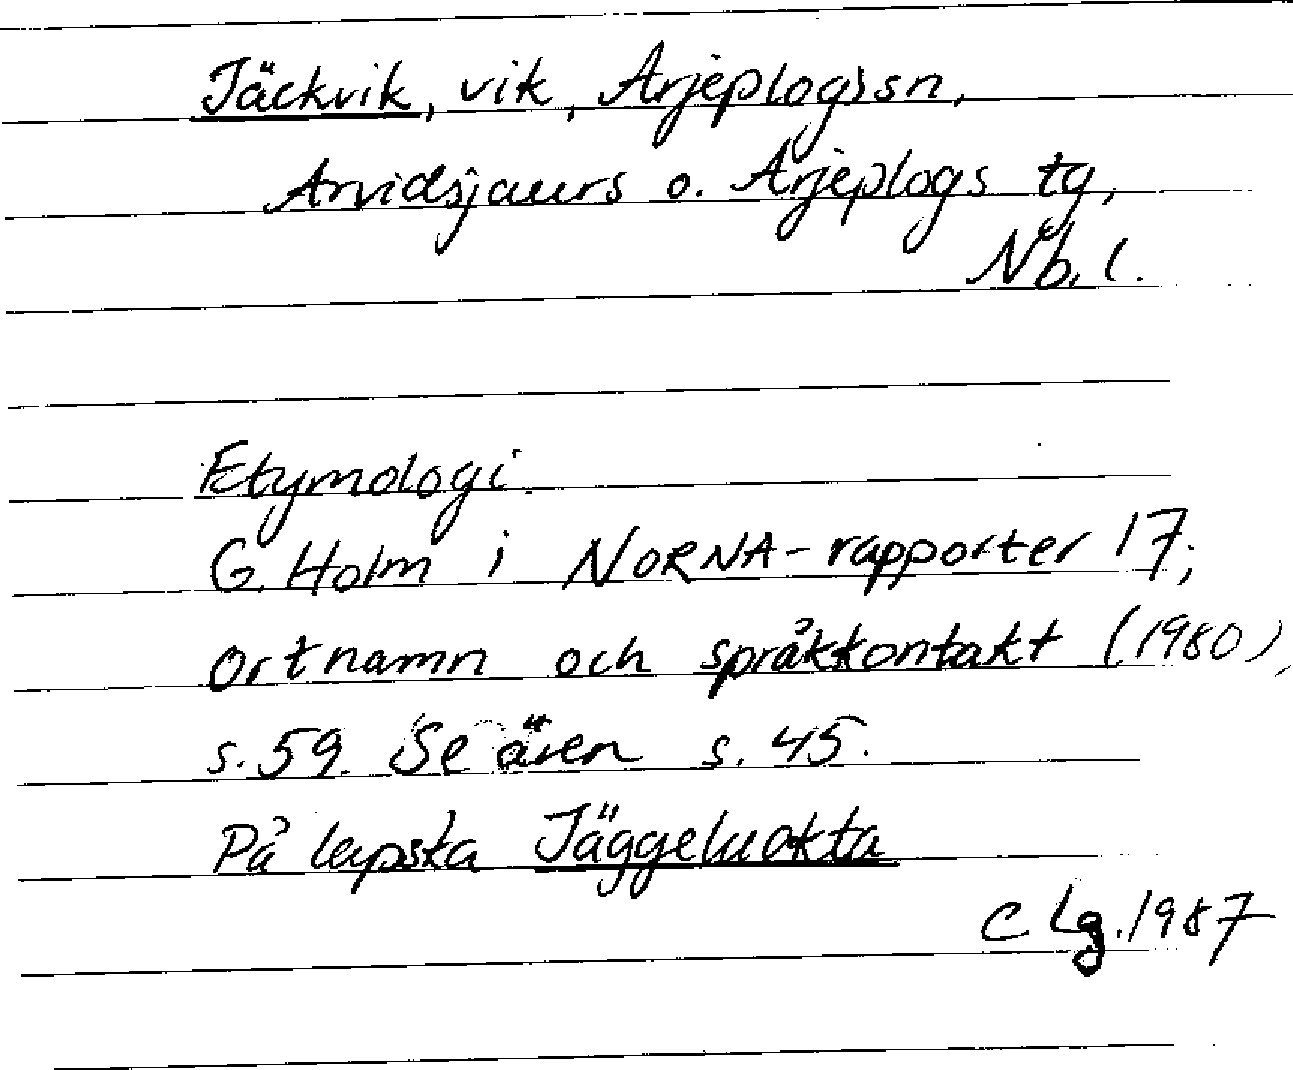 Jäckvik, vik, Arjeplogs sn,
Arvidsjaurs o. Arjeplogs tg,
Nb. l.
Etymologi
G. Holm i NORNA-rapporter 17;
Ortnamn och språkkontakt (1980),
s. 59. Se även s. 45.
På lapska Jäggeluokta
C Lg. 1987